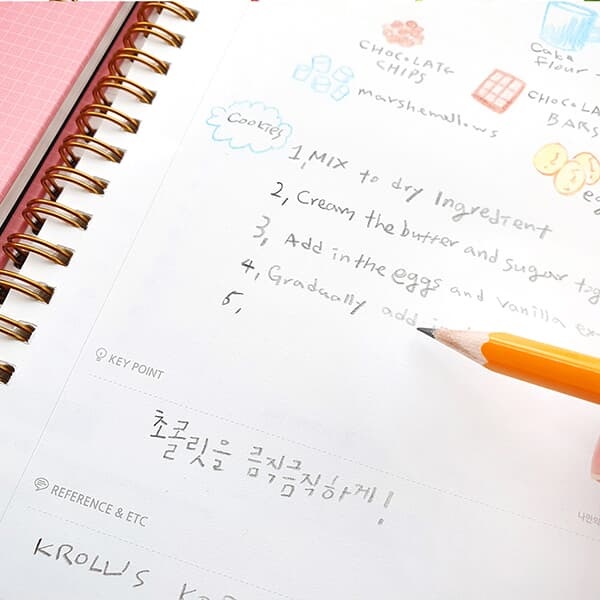 CHOCOLATE
CHIPS
Cake
flour
marshemallows
CHOCOLA
BARS
Cookies
eg
1, MIX to dry Ingredient
2, Cream the butter and sugar tog
3, Add in the eggs and vanilla ex
4, Gradually add
5,
KEY POINT
초콜릿을 큼직큼직하게!
나만의
REFERENCE & ETC
KROLLS